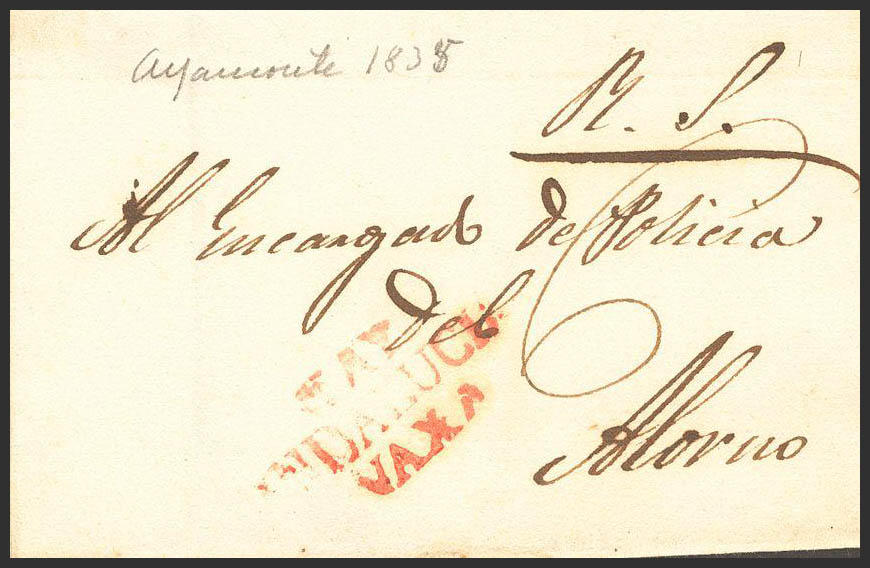 Ayamonte 1835
R. S.
Al Encargado de Policia
del
Alosno
AY
NDALUCI
VAXA